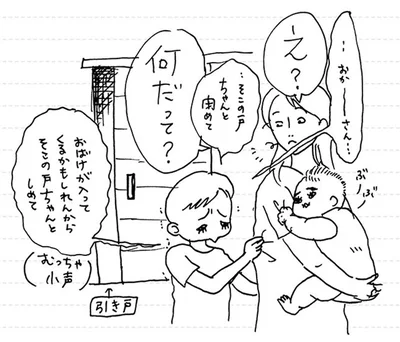 …おか―さん…
え？
…そこの戸
ちゃんと
閉めて
何だって？
おばけが入って
くるかもしれんから
そこの戸ちゃんと
しめて
(むっちゃ
小声)
ぶーぶ
引き戸